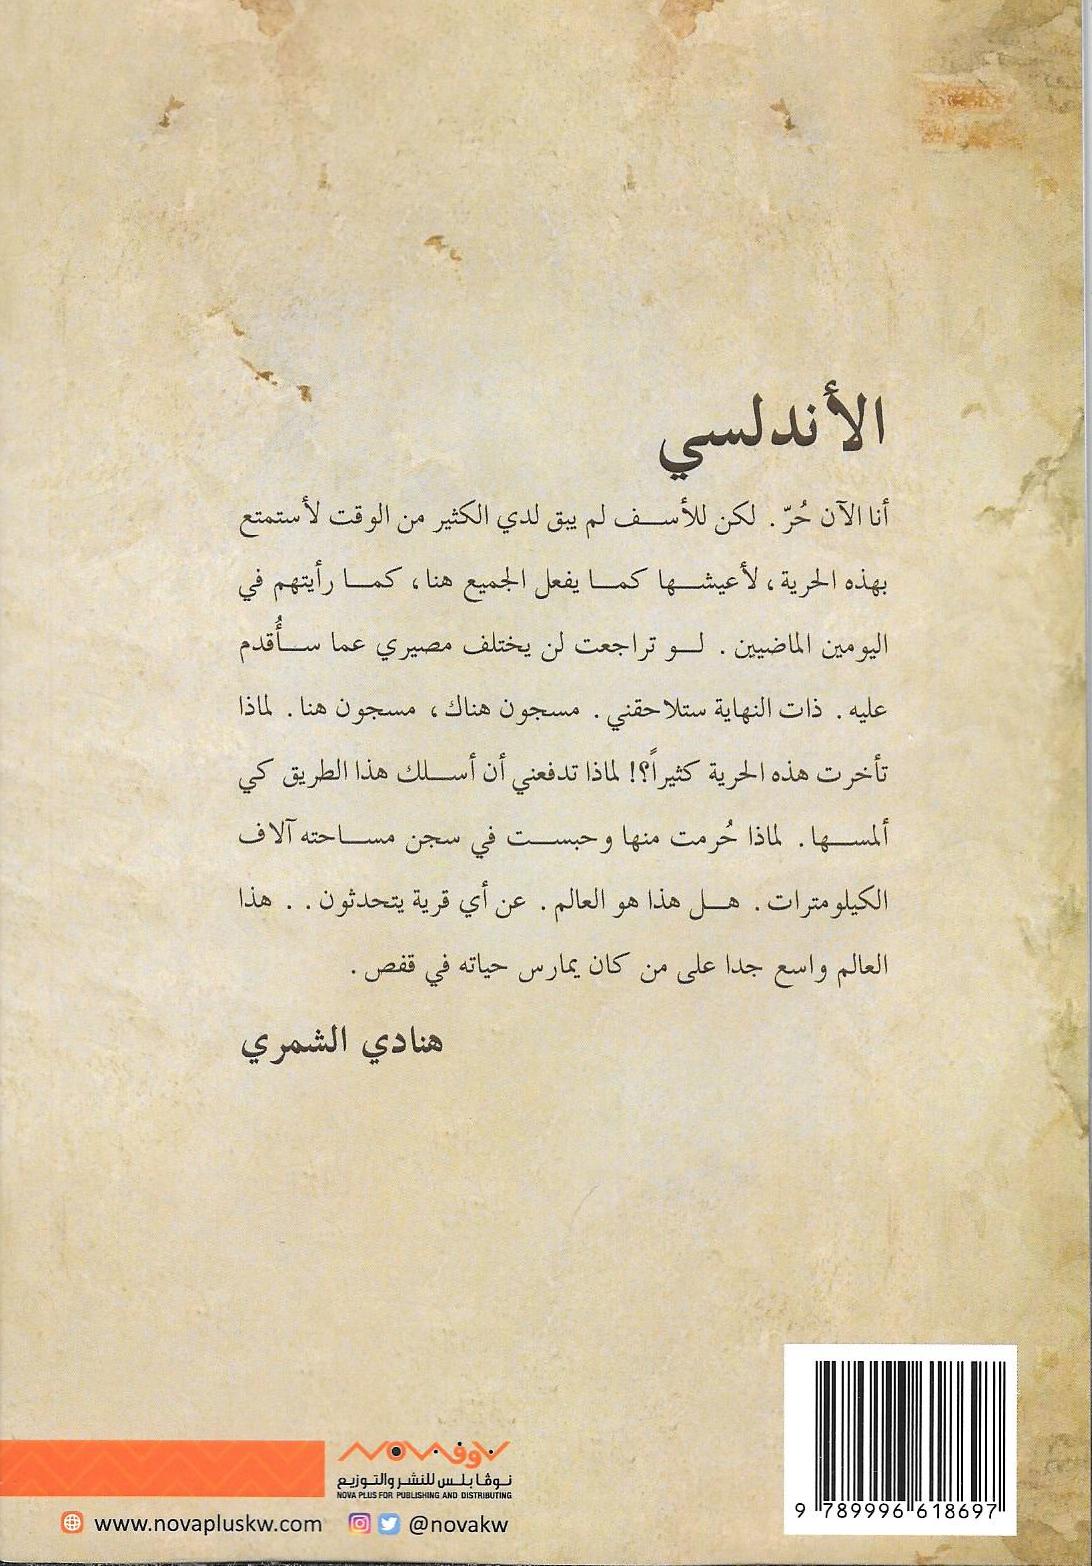 الأندلسي
أنا الآن حُرّ. لكن للأسف لم يبق لدي الكثير من الوقت لأستمتع
بهذه الحرية، لأعيشها كما يفعل الجميع هنا، كما رأيتهم في
اليومين الماضيين. لو تراجعت لن يختلف مصيري عما سأُقدم
عليه. ذات النهاية ستلاحقني. مسجون هناك، مسجون هنا. لماذا
تأخرت هذه الحرية كثيراً؟! لماذا تدفعني أن أسلك هذا الطريق كي
ألمسها. لماذا حُرمت منها وحبست في سجن مساحته آلاف
الكيلومترات. هل هذا هو العالم. عن أي قرية يتحدثون.. هذا
العالم واسع جدا على من كان يمارس حياته في قفص.
هنادي الشمري
NOVA نوڤا
نوڤا بلس للنشر والتوزيع
NOVA PLUS FOR PUBLISHING AND DISTRIBUTING
www.novapluskw.com @novakw
9 789996 618697